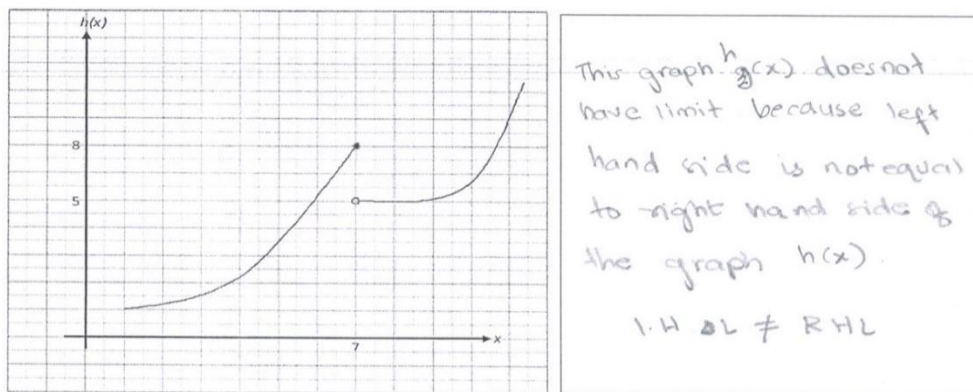 h(x)
8
5
7
x
This graph h(x) does not
have limit because left
hand side is not equal
to right hand side of
the graph h(x).
L.H L ≠ R H L